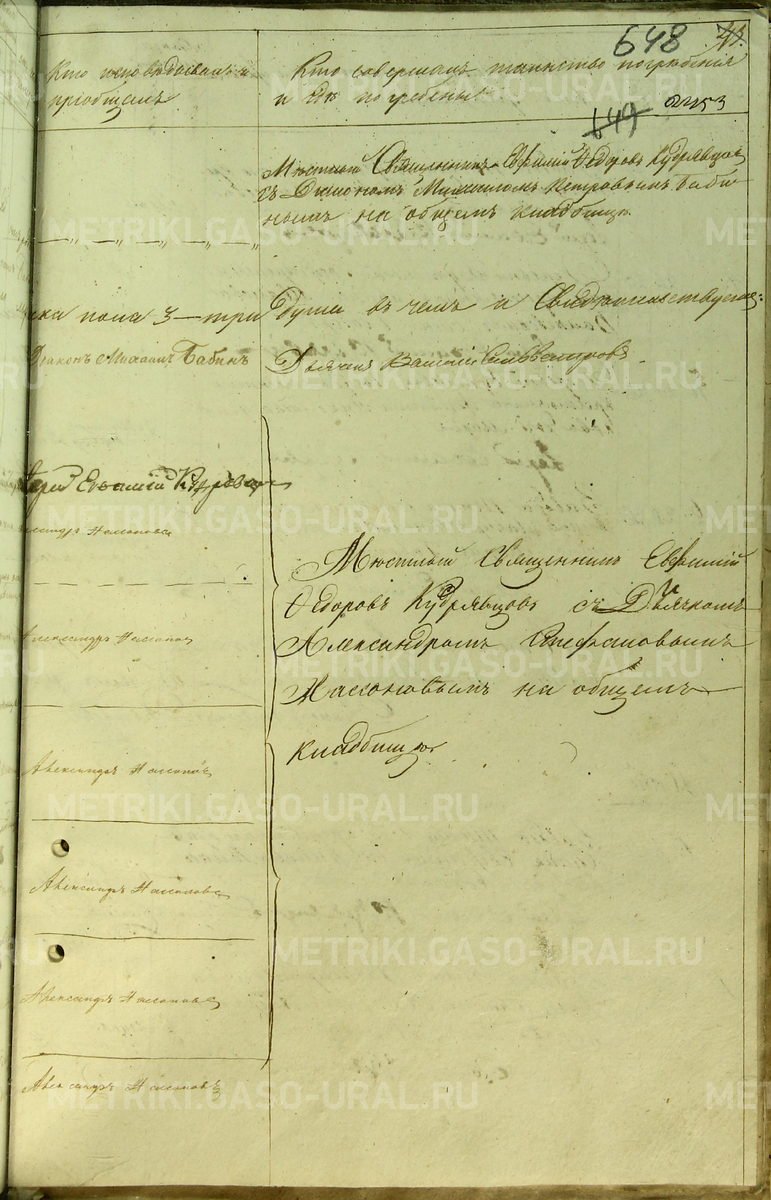 648
Кто исповѣдывалъ и
пріобщалъ
Кто совершалъ таинство погребенія
и гдѣ погребены
649 2253
Мѣстный Священникъ Евфимій Ѳедоровъ Кудрявцовъ
съ Діакономъ Михаиломъ Петровымъ Баби
нымъ на общемъ кладбищѣ.
пола 3 — три души въ чемъ и Свидѣтельствуемъ:
Діаконъ Михаилъ Бабинъ
Дьячекъ Василій Сильвестровъ
Іерей Евфимій Кудрявцовъ
Александръ Нассоновъ
Мѣстный Священникъ Евфимій
Ѳедоровъ Кудрявцовъ съ Дьячкомъ
Александромъ Стефановымъ
Нассоновымъ на общемъ
кладбищѣ
Александръ Нассоновъ
Александръ Нассоновъ
Александръ Нассоновъ
Александръ Нассоновъ
Александръ Нассоновъ
METRIKI.GASO-URAL.RU